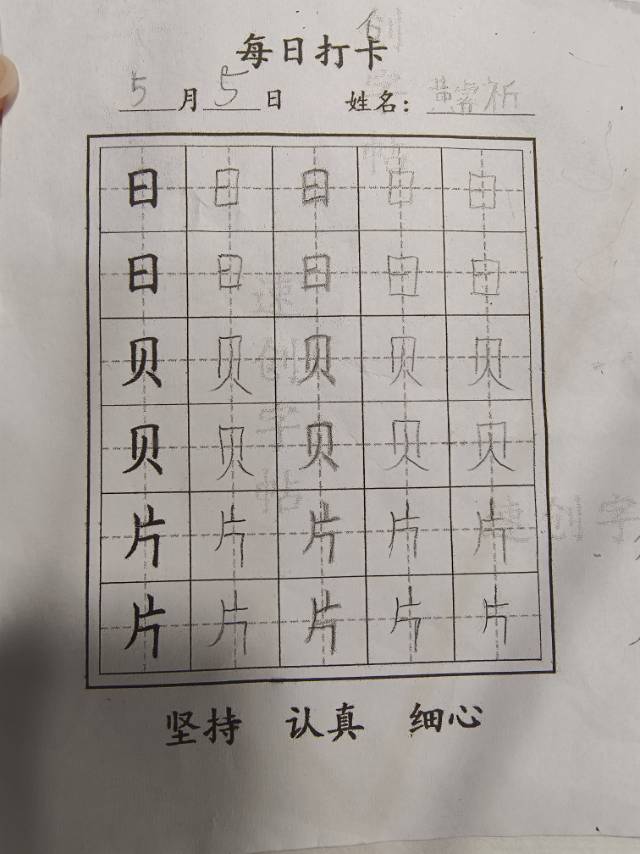 每日打卡
5月5日 姓名：黄睿祈
日 日 日 日 日
日 日 日 日 日
贝 贝 贝 贝 贝
贝 贝 贝 贝 贝
片 片 片 片 片
片 片 片 片 片
坚持 认真 细心